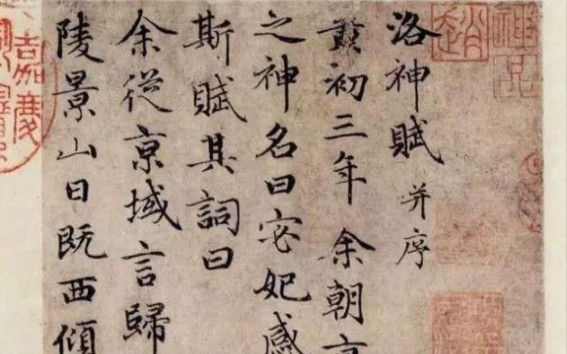 洛神賦 并序
黃初三年 余朝京
之神名曰宓妃感
斯賦其詞曰
余從京域言歸
陵景山日既西傾
嘉慶
神品